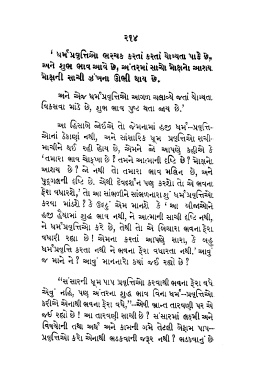 ૨૧૪
' ધર્મપ્રવૃત્તિઓ ભરચક કરતાં કરતાં યોગ્યતા પાકે છે,
અને શુભ ભાવ આવે છે, અંતરમાં સાચો મોક્ષનો આશય
મોક્ષની સાચી ઝંખના ઊભી થાય છે.
અને એજ ધર્મપ્રવૃત્તિઓ આગળ ચલાવ્યે જતાં યોગ્યતા
વિકસવા માંડે છે, શુભ ભાવ પુષ્ટ થતા જાય છે.'
આ હિસાબે જોઈએ તો જેમનામાં હજી ધર્મ-પ્રવૃત્તિ-
ઓનાં ઠેકાણાં નથી, અને સાંસારિક ધૂમ પ્રવૃત્તિઓ રાચી-
માચીને થઈ રહી હોય છે, એમને જો આપણે કહીએ કે
'તમારા ભાવ ચોક્ખા છે ? તમને આત્માની દૃષ્ટિ છે ? મોક્ષનો
આશય છે ? જો નથી તો તમારા ભાવ મલિન છે, અને
પુદ્ગલની દૃષ્ટિ છે. એથી દેવદર્શન પણ કરશો તો એ ભવના
ફેરા વધારશે,' તો આ સાંભળીને સાંભળનારા શું ધર્મપ્રવૃત્તિઓ
કરવા માંડશે ? કે ઉલ્ટું એમ માનશે કે 'આ લોકોને
હજી હૈયામાં શુદ્ધ ભાવ નથી, ને આત્માની સાચી દૃષ્ટિ નથી,
ને ધર્મપ્રવૃત્તિઓ કરે છે, તેથી તો એ બિચારા ભવના ફેરા
વધારી રહ્યા છે ! એમના કરતાં આપણે સારા, કે બહુ
ધર્મપ્રવૃત્તિ કરતા નથી ને ભવના ફેરા વધારતા નથી.' આવું
જ માને ને ? આવું માનનારો ક્યાં જઈ રહ્યો છે ?
"સંસારની ધૂમ પાપ પ્રવૃત્તિઓ કરવાથી ભવના ફેરા વધે
એવું નહિ, પણ અંતરના શુદ્ધ ભાવ વિના ધર્મ-પ્રવૃત્તિઓ
કરીએ એનાથી ભવના ફેરા વધે,"-એવી ભ્રાન્ત તારવણી પર એ
જઈ રહ્યો છે ! આ તારવણી સાચી છે ? સંસારમાં લક્ષ્મી અને
વિષયોની તથા અર્થ અને કામની ગમે તેટલી બેફામ પાપ-
પ્રવૃત્તિઓ કરો એનાથી ભટકવાની જરૂર નથી ? ભટકવાનું છે